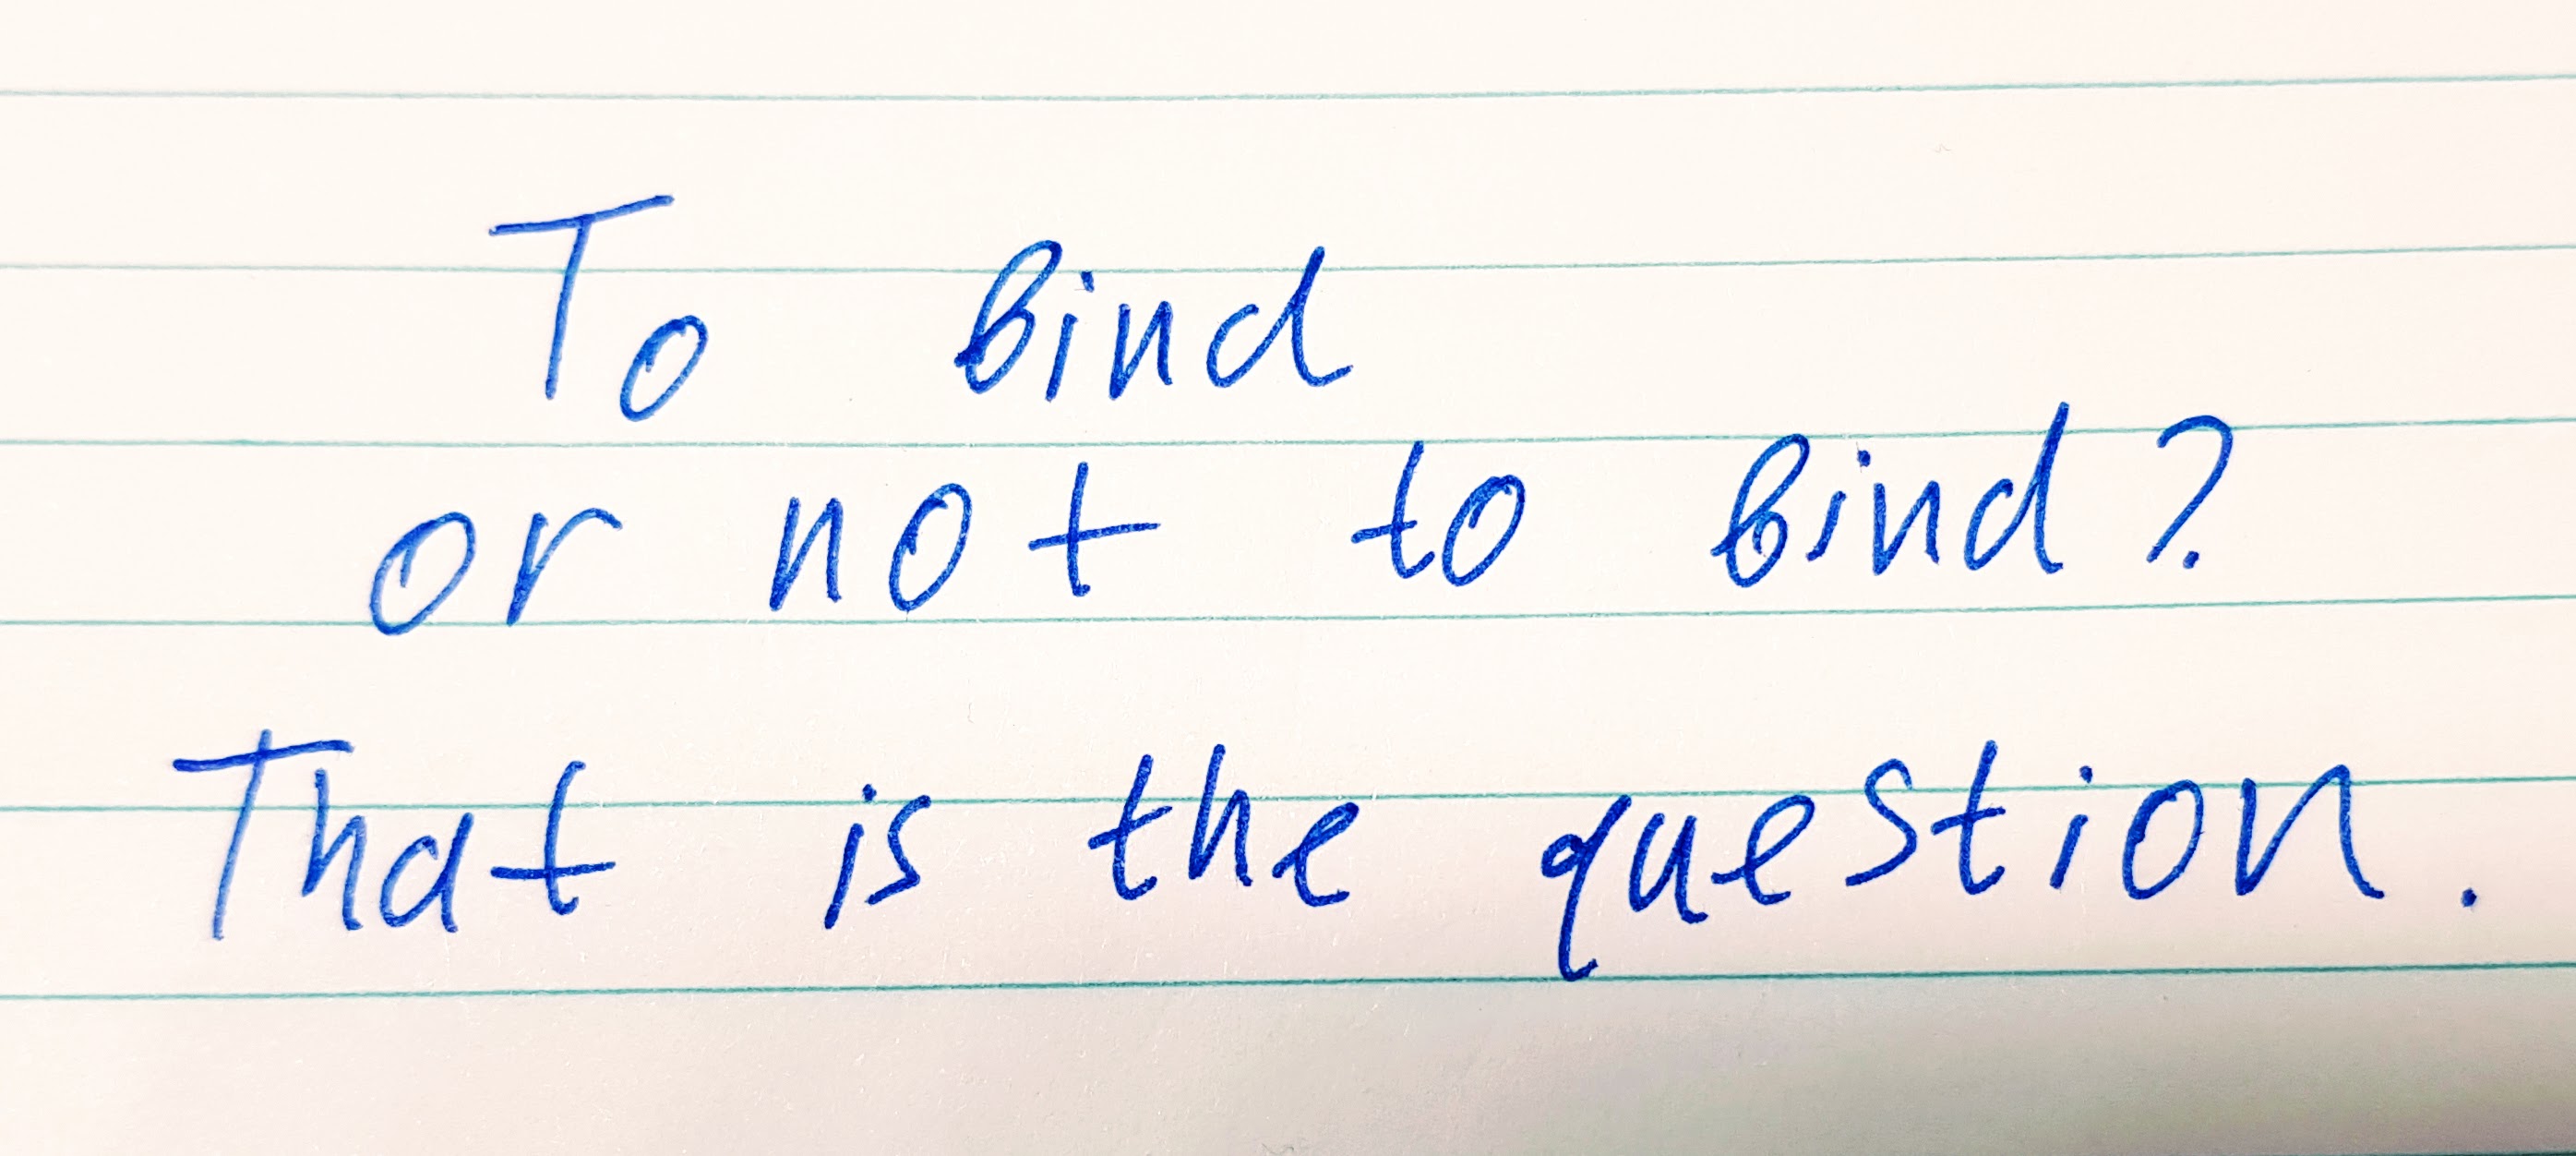 To bind
or not to bind?
That is the question.